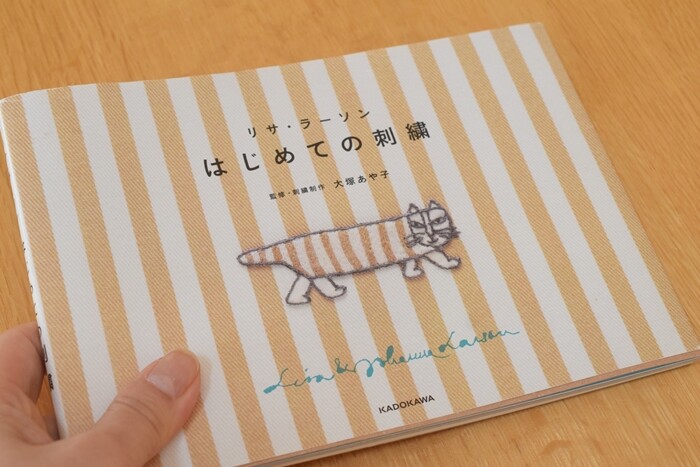 リサ・ラーソン
はじめての刺繍
監修・刺繍制作 大塚あや子
Lisa & Johanna Larson
KADOKAWA